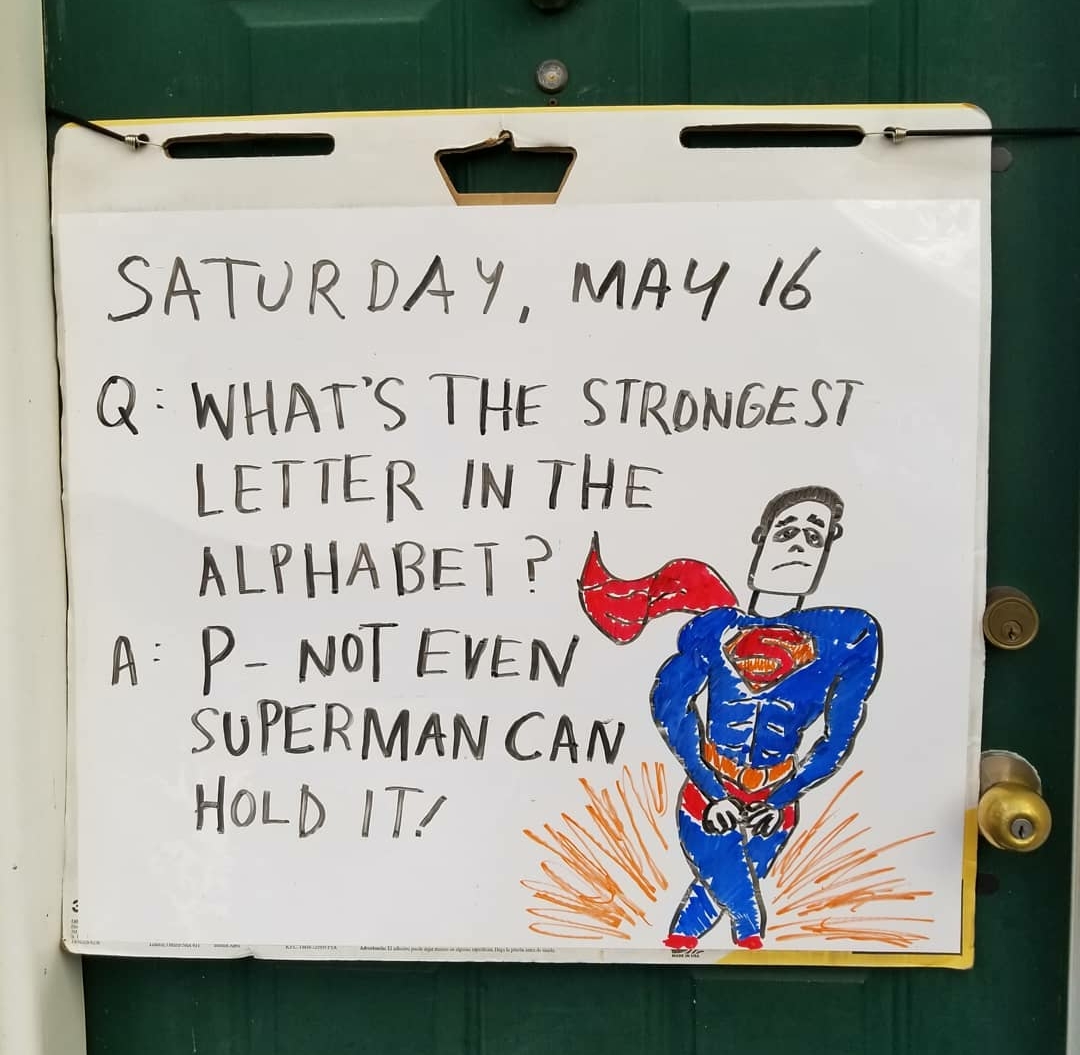 SATURDAY, MAY 16
Q: WHAT'S THE STRONGEST
LETTER IN THE
ALPHABET?
A: P- NOT EVEN
SUPERMAN CAN
HOLD IT!
S
MADE IN USA